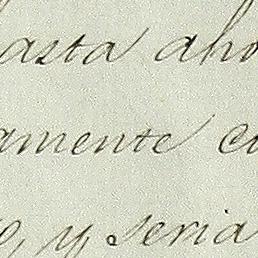 asta aho
amente co
o, y seria